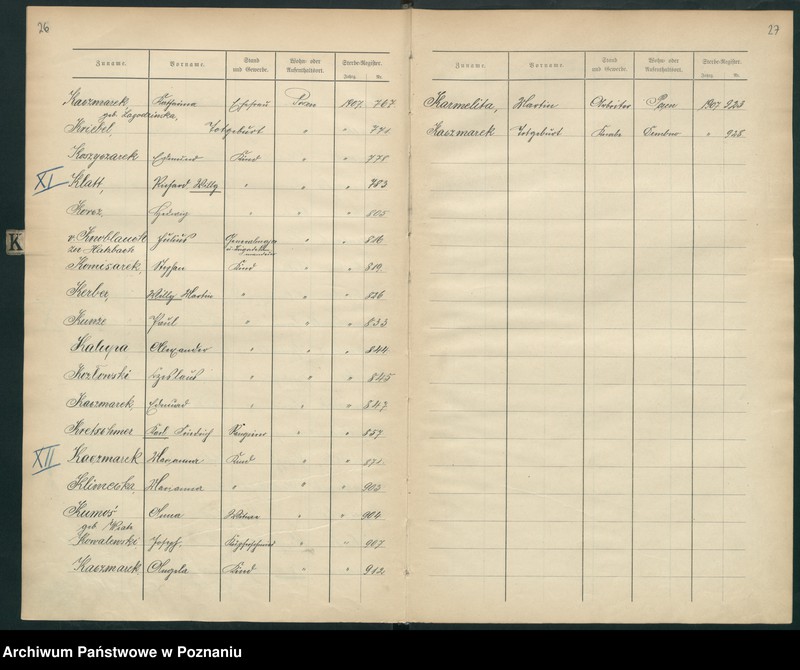 26
Zuname. Vorname. Stand und Gewerbe. Wohn- oder Aufenthaltsort. Sterbe-Register. Jahrg. Nr.
Kaczmarek Katharina Ehefrau Posen 1907. 767.
geb.
Kriebel Totgeburt " " 771.
Koszyczarek Edmund Kind " " 778
XI Klatt, Richard Willy " " " 783
Korcz, Hedwig " " " 805
v. Knoblauch Julius " " 816
zu Hatzbach
Komisarek, Stephan Kind " " 819.
Kerber, Willy Martin " " " 826
Kunze Paul " " " 833
Kaluzna Alexander " " " 844
Kozłowski Czeslaus " " " 845
Kaczmarek, Edmund " " " 847
Kretschmer Karl Heinrich " " 857
XII Kaczmarek Maryanna Kind " " 871.
Maryanna " " " 903
Kumoś Anna Witwe " " 904
geb.
Kowalewski Joseph. Kupferschmied " " 907
Kaczmarek Angela Kind " " 912
K
27
Zuname. Vorname. Stand und Gewerbe. Wohn- oder Aufenthaltsort. Sterbe-Register. Jahrg. Nr.
Karmelita, Martin Arbeiter Posen 1907 923
Kaczmarek Totgeburt Knabe " 928
Archiwum Państwowe w Poznaniu